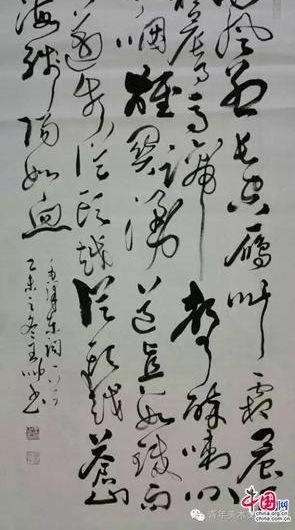 风烈长空雁叫霜晨
蹄声碎喇叭
咽雄关漫道真如铁而
迈步从头越从头越苍山
海残阳如血
毛泽东词一首
乙未之冬王帅书
青年美术
中国网
china.org.cn